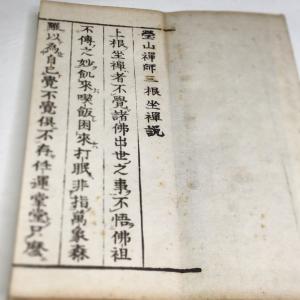 瑩山禪師三根坐禪說
上根坐禪者不覺諸佛出世之事不悟佛祖
不傳之妙飢來喫飯困來打眠非指萬象森
羅以為自己覺不覺俱不存任運堂堂只麼